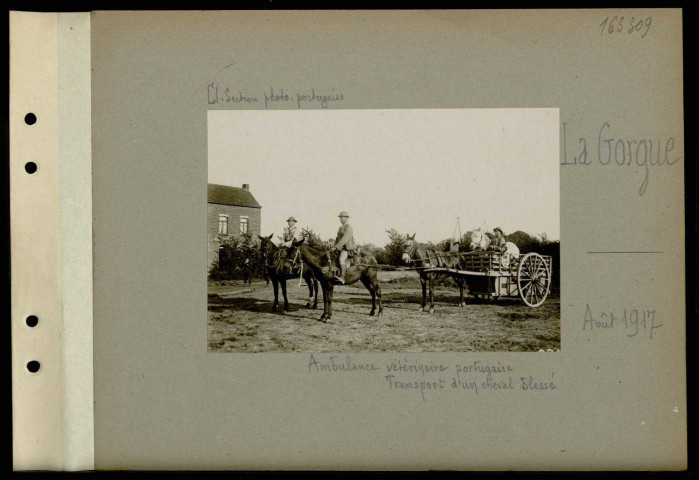 163309
Cl. Section photo. portugaise
La Gorgue
Août 1917
Ambulance vétérinaire portugaise
Transport d'un cheval blessé